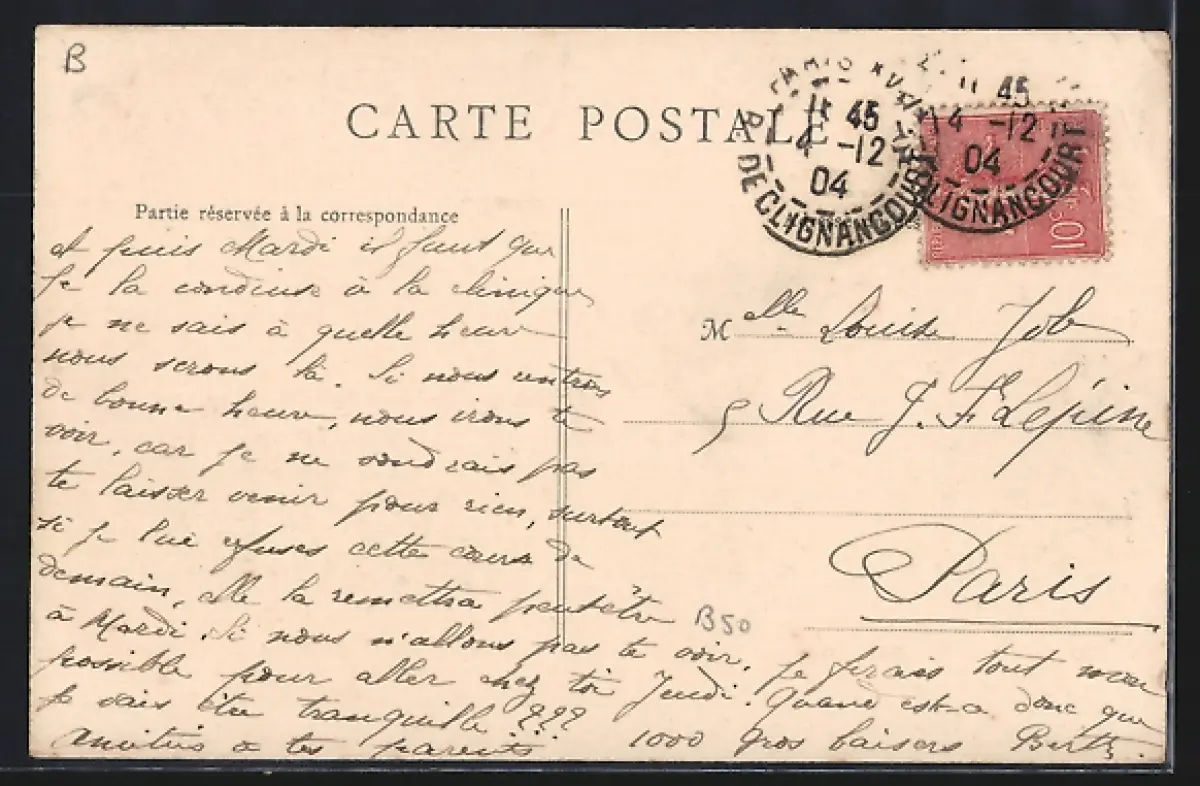 B
CARTE POSTALE
PARIS XVIII
11 45
4 -12
04
R. DE CLIGNANCOURT
11 45
4 -12
04
CLIGNANCOURT
10c
Partie réservée à la correspondance
et puis Mardi il faut que
je la conduise à la clinique
je ne sais à quelle heure
nous serons là. Si nous rentrons
de bonne heure, nous irons te
voir, car je ne voudrais pas
te laisser venir pour rien, surtout
si je lui refuses cette course de
demain, elle la remettra peutêtre
à Mardi. Si nous n'allons pas te voir, je ferais tout mon
possible pour aller chez toi Jeudi. Quand est-ce donc que
je vais être tranquille ???
Amitiés à tes parents 1000 gros baisers Berthe.
Melle Louise Job
5 Rue J. Fs Lépine
Paris
B50